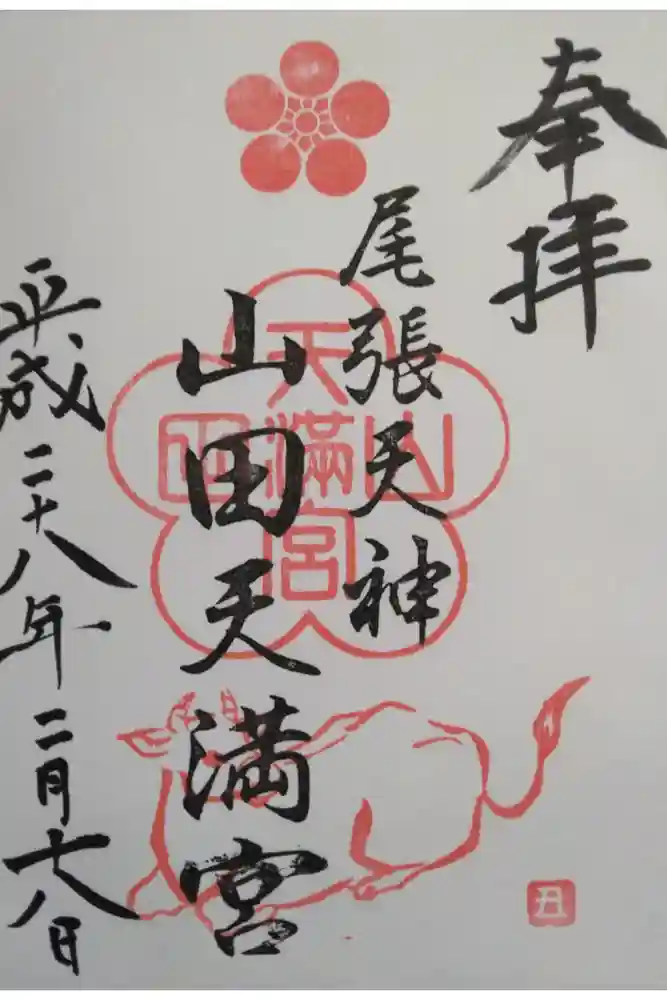 奉拝
尾張天神
山田天満宮
平成二十八年二月十八日
山田
天滿宮
丑